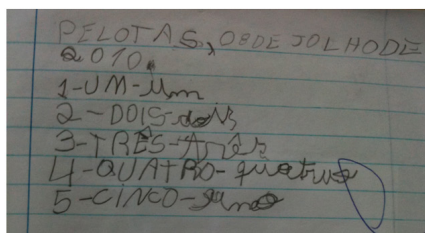 PELOTAS, 08 DE JOLHO DE
2010.
1-UM-um
2-DOIS-dois
3-TRÊS-três
4-QUATRO-quatro
5-CINCO-cinco